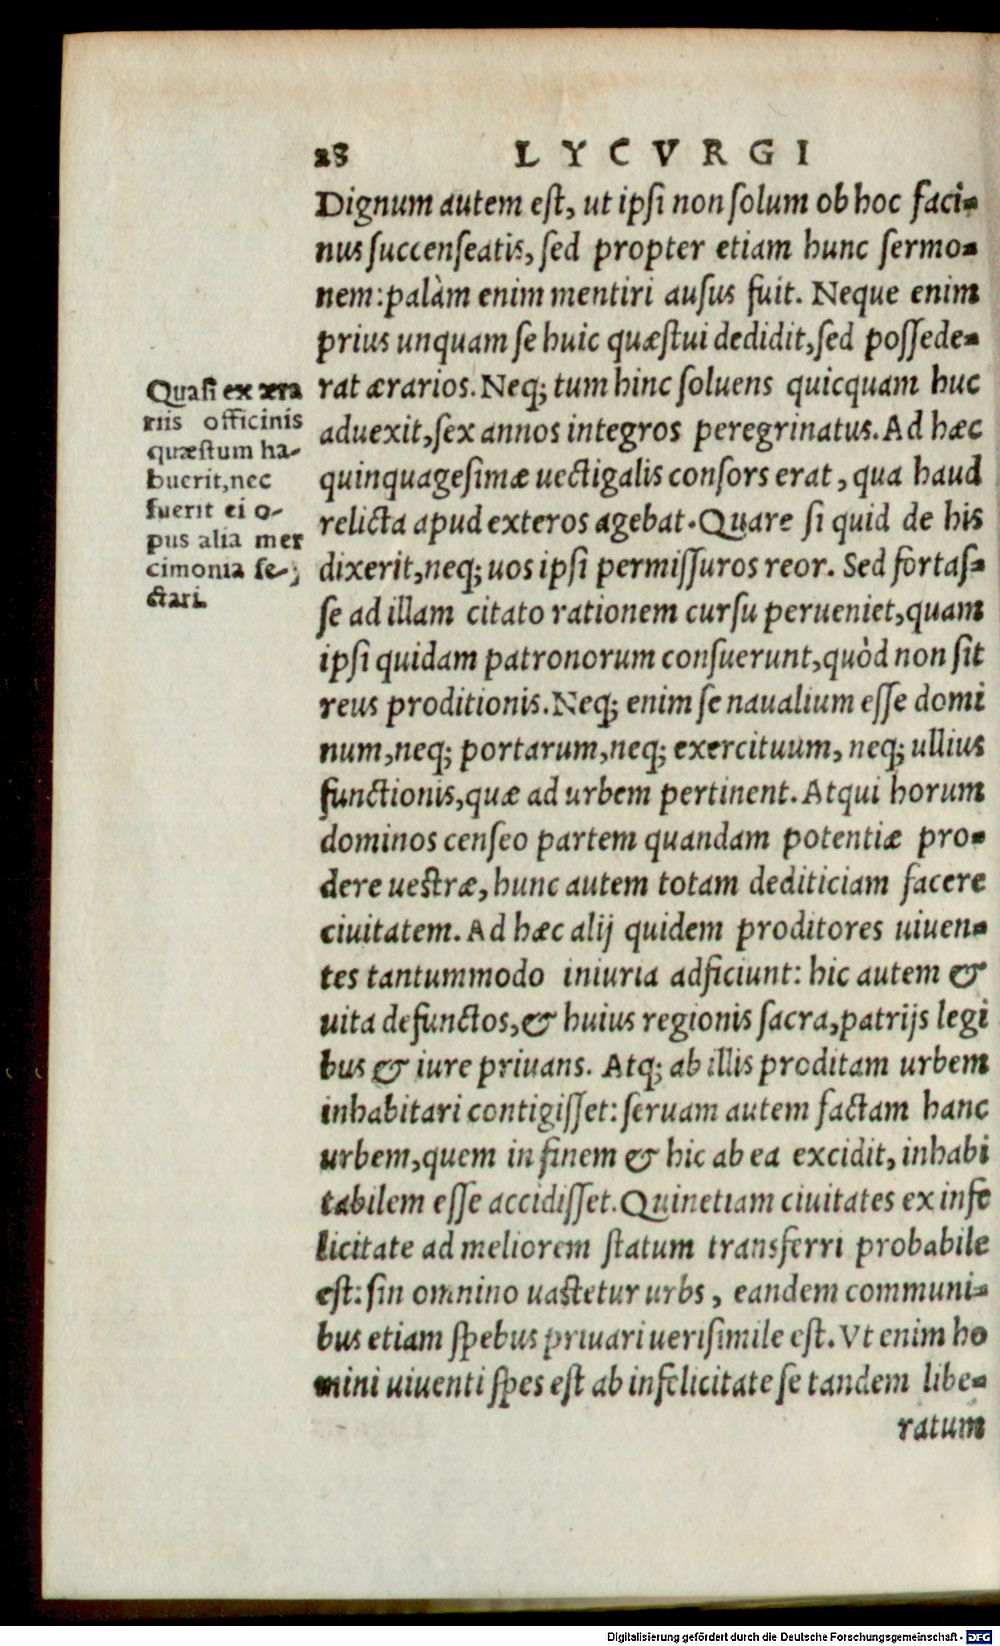 28 LYCVRGI
Dignum autem est, ut ipsi non solum ob hoc faci-
nus succenseatis, sed propter etiam hunc sermo-
nem: palàm enim mentiri ausus fuit. Neque enim
prius unquam se huic quæstui dedidit, sed possede-
rat ærarios. Neq; tum hinc soluens quicquam huc
aduexit, sex annos integros peregrinatus. Ad hæc
quinquagesimæ uectigalis consors erat, qua haud
relicta apud exteros agebat. Quare si quid de his
dixerit, neq; uos ipsi permissuros reor. Sed fortas-
se ad illam citato rationem cursu perueniet, quam
ipsi quidam patronorum consuerunt, quòd non sit
reus proditionis. Neq; enim se naualium esse domi
num, neq; portarum, neq; exercituum, neq; ullius
functionis, quæ ad urbem pertinent. Atqui horum
dominos censeo partem quandam potentiæ pro-
dere uestræ, hunc autem totam dediticiam facere
ciuitatem. Ad hæc alij quidem proditores uiuen-
tes tantummodo iniuria adficiunt: hic autem &
uita defunctos, & huius regionis sacra, patrijs legi
bus & iure priuans. Atq; ab illis proditam urbem
inhabitari contigisset: seruam autem factam hanc
urbem, quem in finem & hic ab ea excidit, inhabi
tabilem esse accidisset. Quinetiam ciuitates ex infe
licitate ad meliorem statum transferri probabile
est: sin omnino uastetur urbs, eandem communi-
bus etiam spebus priuari uerisimile est. Vt enim ho
mini uiuenti spes est ab infelicitate se tandem libe-
ratum
Quasi ex æra
riis officinis
quæstum ha-
buerit, nec
fuerit ei o-
pus alia mer
cimonia se-
ctari.
Digitalisierung gefördert durch die Deutsche Forschungsgemeinschaft - DFG